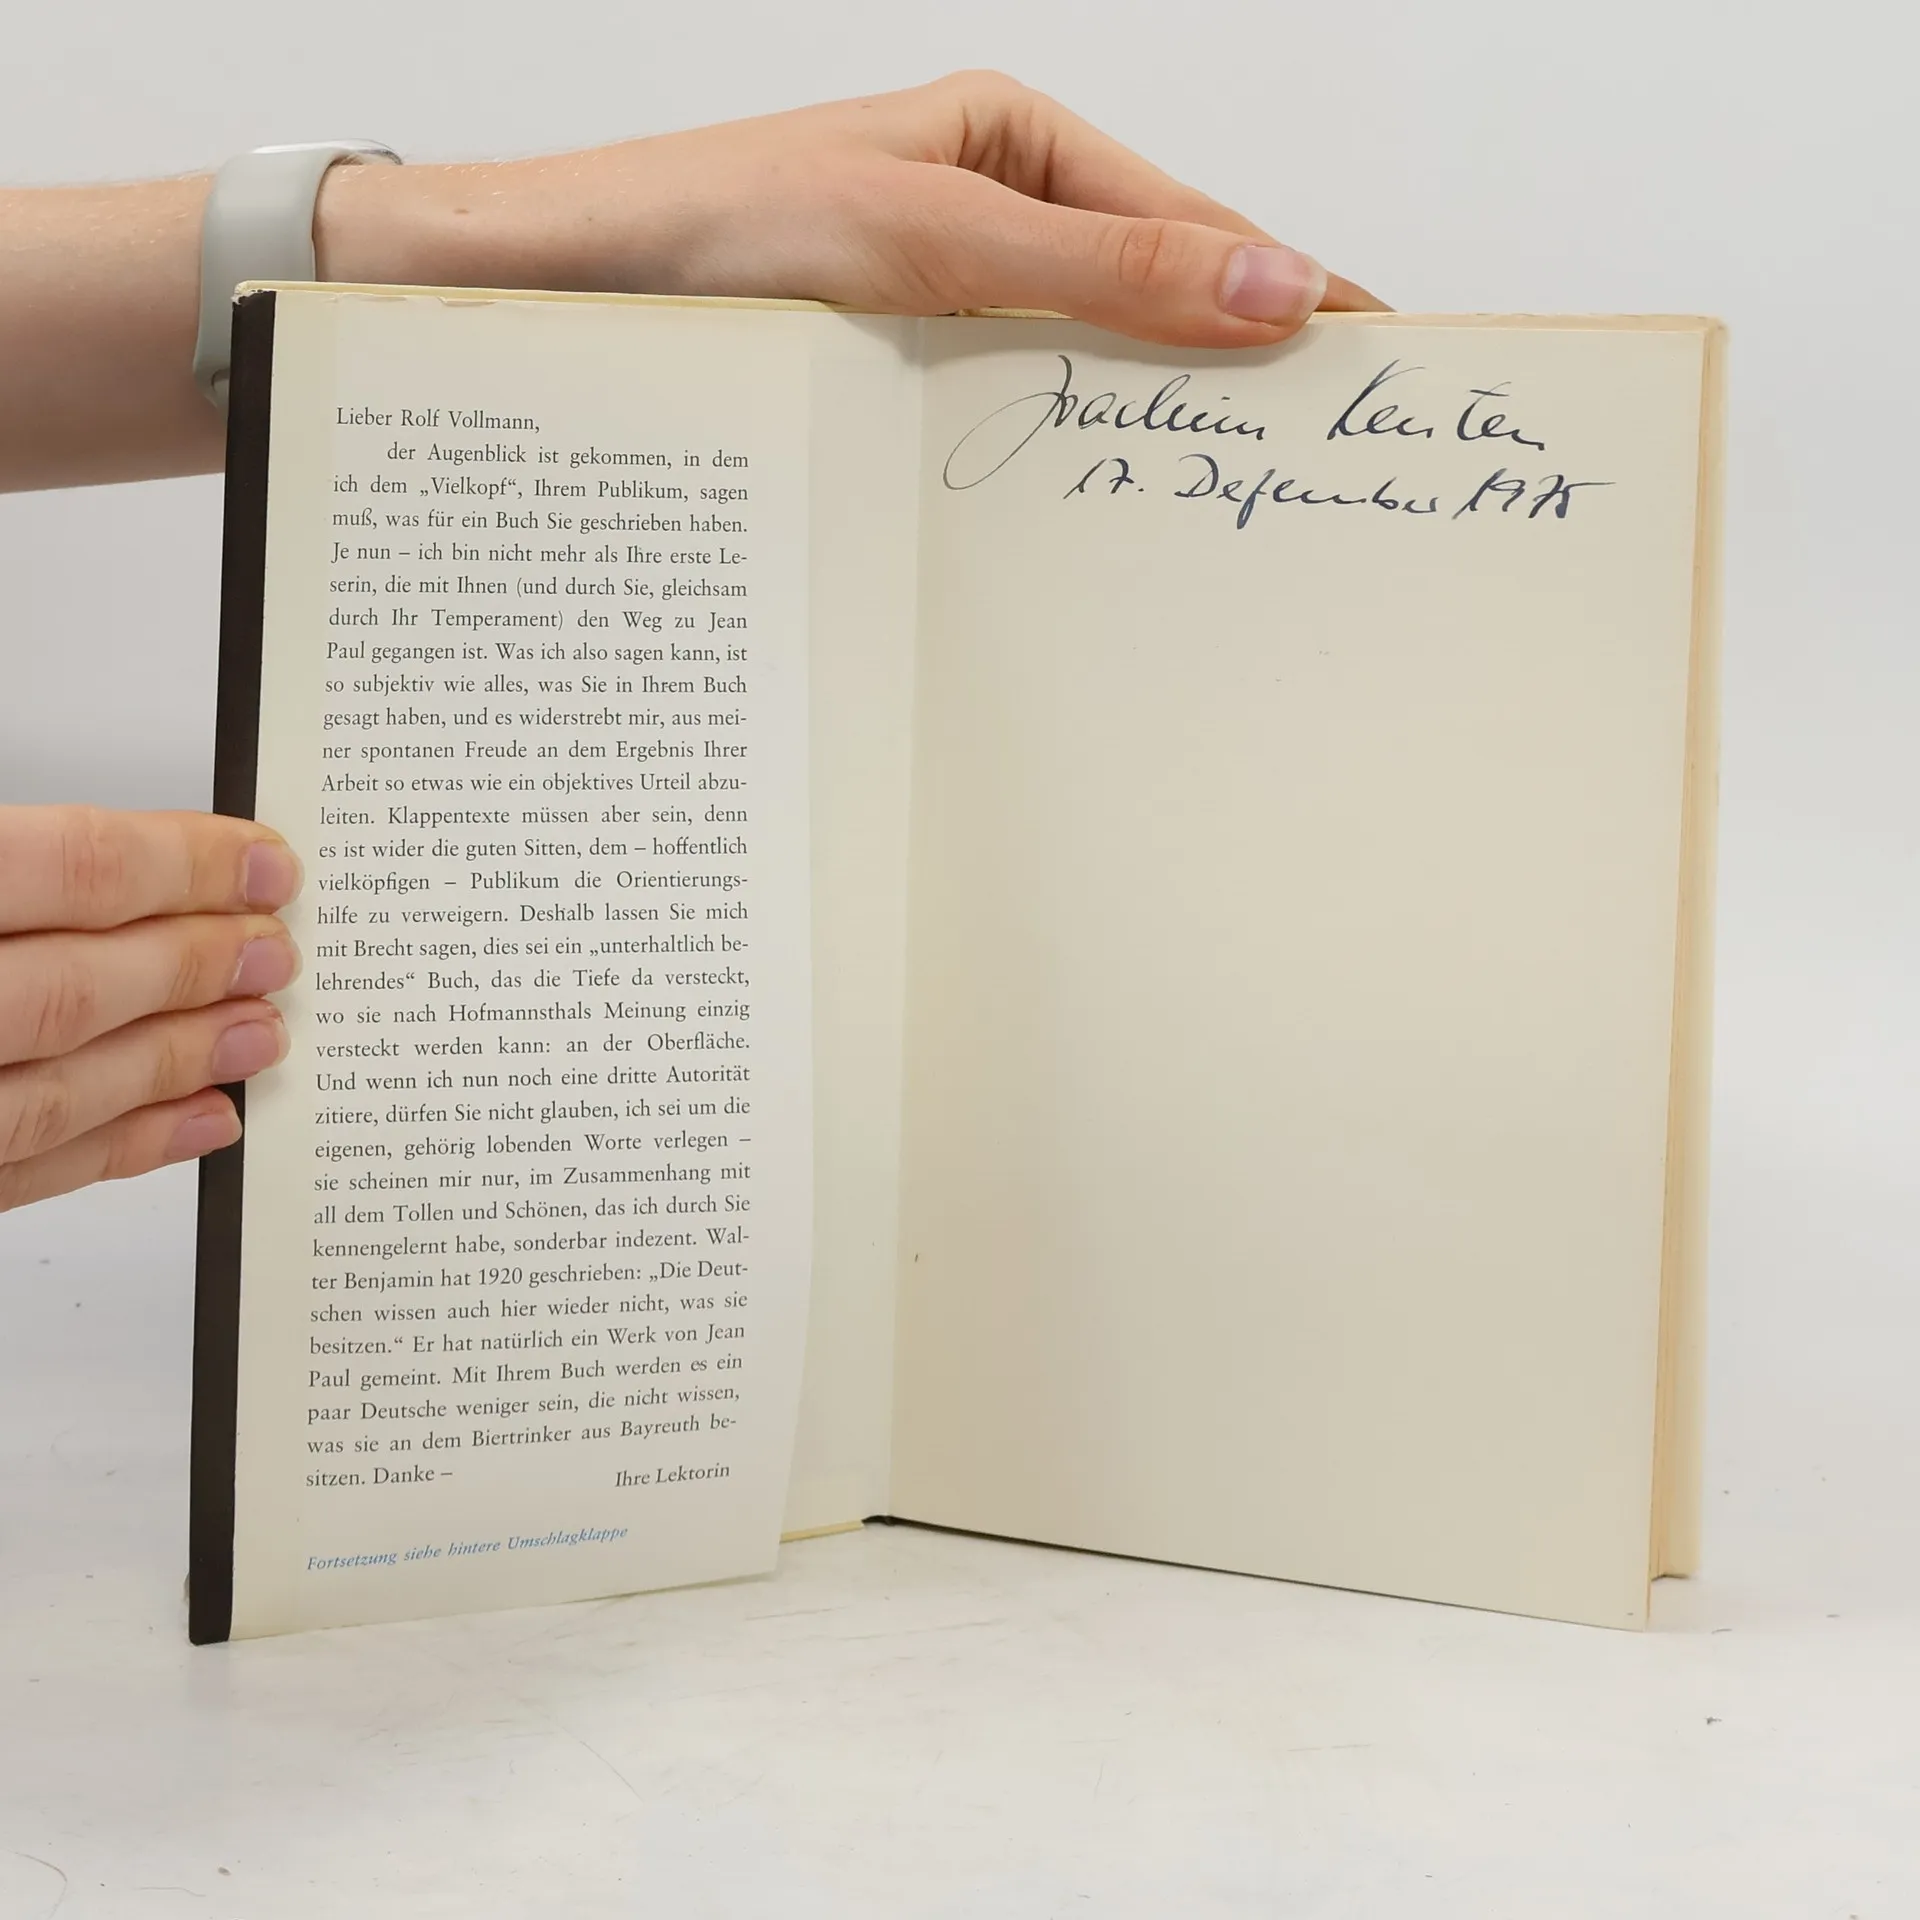 Lieber Rolf Vollmann,
der Augenblick ist gekommen, in dem
ich dem „Vielkopf“, Ihrem Publikum, sagen
muß, was für ein Buch Sie geschrieben haben.
Je nun – ich bin nicht mehr als Ihre erste Le-
serin, die mit Ihnen (und durch Sie, gleichsam
durch Ihr Temperament) den Weg zu Jean
Paul gegangen ist. Was ich also sagen kann, ist
so subjektiv wie alles, was Sie in Ihrem Buch
gesagt haben, und es widerstrebt mir, aus mei-
ner spontanen Freude an dem Ergebnis Ihrer
Arbeit so etwas wie ein objektives Urteil abzu-
leiten. Klappentexte müssen aber sein, denn
es ist wider die guten Sitten, dem – hoffentlich
vielköpfigen – Publikum die Orientierungs-
hilfe zu verweigern. Deshalb lassen Sie mich
mit Brecht sagen, dies sei ein „unterhaltlich be-
lehrendes“ Buch, das die Tiefe da versteckt,
wo sie nach Hofmannsthals Meinung einzig
versteckt werden kann: an der Oberfläche.
Und wenn ich nun noch eine dritte Autorität
zitiere, dürfen Sie nicht glauben, ich sei um die
eigenen, gehörig lobenden Worte verlegen –
sie scheinen mir nur, im Zusammenhang mit
all dem Tollen und Schönen, das ich durch Sie
kennengelernt habe, sonderbar indezent. Wal-
ter Benjamin hat 1920 geschrieben: „Die Deut-
schen wissen auch hier wieder nicht, was sie
besitzen.“ Er hat natürlich ein Werk von Jean
Paul gemeint. Mit Ihrem Buch werden es ein
paar Deutsche weniger sein, die nicht wissen,
was sie an dem Biertrinker aus Bayreuth be-
sitzen. Danke – Ihre Lektorin
Fortsetzung siehe hintere Umschlagklappe
Joachim Kersten
17. Dezember 1975